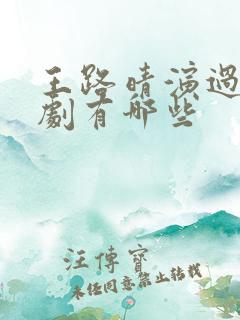 王路晴演過
劇有哪些
汪傳寶
未经同意禁止转载